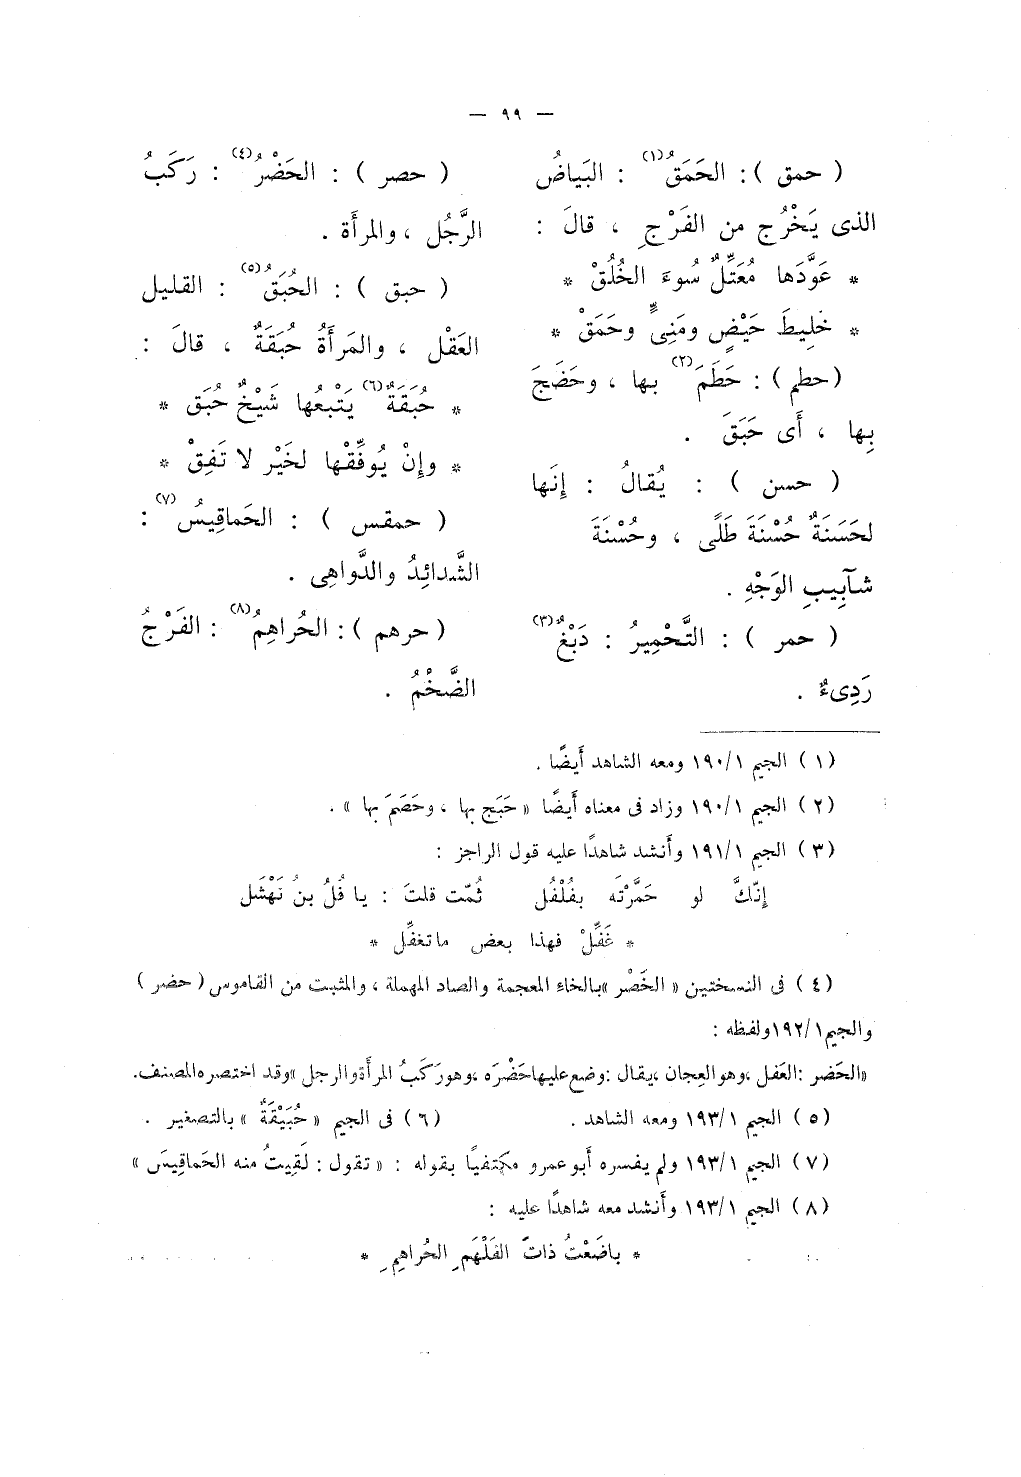 — ٩٩ —
( حمق ) : الحَمَقُ(١) : البَياضُ
الذى يَخْرُج من الفَرْجِ ، قالَ :
* عَوَّدَها مُعَتِّلٌ سُوءَ الخُلُقْ *
* خَلِيطَ حَيْضٍ ومَنِىٍّ وحَمَقْ *
(حطم) : حَطَمَ(٢) بها ، وحَضَجَ
بِها ، أَى حَبَقَ .
( حسن ) : يُقالُ : إِنَها
لحَسَنَةٌ حُسْنَةَ طَلًى ، وحُسْنَةَ
شآبِيبِ الوَجْهِ .
( حمر ) : التَّحْمِيرُ : دَبْغٌ(٣)
رَدِىءٌ .
( حصر ) : الحَضْرُ(٤) : رَكَبُ
الرَّجُل ، والمرأَة .
( حبق ) : الحُبَقُ(٥) : القليل
العَقْل ، والمَرأَةُ حُبَقَةٌ ، قالَ :
* حُبَقَةٌ(٦) يَتْبعُها شَيْخٌ حُبَق *
* وإِنْ يُوفِّقْها لخَيْر لا تَفِقْ *
( حمقس ) : الحَماقِيسُ(٧) :
الشَّدائِدُ والدَّواهِى .
( حرهم ) : الحُراهِمُ(٨) : الفَرْجُ
الضَّخْمُ .
(١) الجيم ١٩٠/١ ومعه الشاهد أَيضًا .
(٢) الجيم ١٩٠/١ وزاد فى معناه أَيضًا « حَبَج بها ، وحَصَمَ بها » .
(٣) الجيم ١٩١/١ وأَنشد شاهدًا عليه قول الراجز :
إِنّكَّ لو حَمَّرْتَه بفُلْفُل ثُمّت قلتَ : يا فُلُ بنُ نَهْشَل
* غَفِّلْ فهذا بعض ماتغفِّل *
(٤) فى النسختين « الخَصْر »بالخاء المعجمة والصاد المهملة ، والمثبت من القاموس (حضر)
والجيم١٩٢/١ولفظه :
«الحَضر :العَفل ،وهوالعِجان ،يقال :وضع عليهاحَضْرَه ،وهورَكَبُ المرأَةوالرجل »وقد اختصره المصنف.
(٥) الجيم ١٩٣/١ ومعه الشاهد . (٦) فى الجيم « حُبَيْقَةٌ » بالتصغير .
(٧) الجيم ١٩٣/١ ولم يفسره أَبو عمرو مكتفيًا بقوله : « تقول : لَقِيتُ منه الحَماقِيسَ »
(٨) الجيم ١٩٣/١ وأَنشد معه شاهدًا عليه :
* باضَعْتُ ذاتَ الفَلْهَمِ الحُراهِمِ *